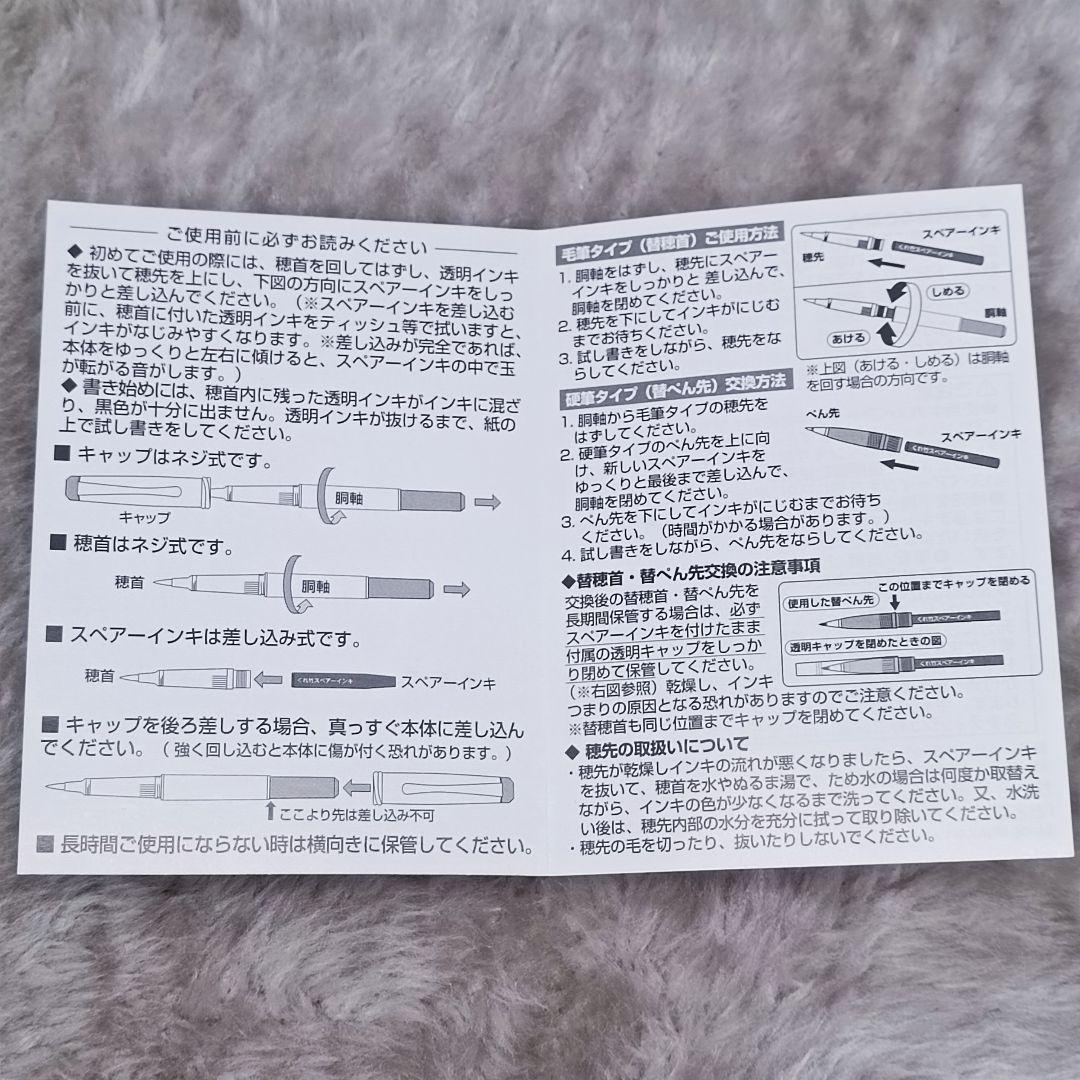 ご使用前に必ずお読みください
◆ 初めてご使用の際には、穂首を回してはずし、透明インキ
を抜いて穂先を上にし、下図の方向にスペアーインキをしっ
かりと差し込んでください。(※スペアーインキを差し込む
前に、穂首に付いた透明インキをティッシュ等で拭いますと、
インキがなじみやすくなります。※差し込みが完全であれば、
本体をゆっくりと左右に傾けると、スペアーインキの中で玉
が転がる音がします。)
◆ 書き始めには、穂首内に残った透明インキがインキに混ざ
り、黒色が十分に出ません。透明インキが抜けるまで、紙の
上で試し書きをしてください。
■ キャップはネジ式です。
胴軸
キャップ
■ 穂首はネジ式です。
穂首
胴軸
■ スペアーインキは差し込み式です。
穂首
くれ竹スペアーインキ
スペアーインキ
■ キャップを後ろ差しする場合、真っすぐ本体に差し込ん
でください。(強く回し込むと本体に傷が付く恐れがあります。)
ここより先は差し込み不可
■ 長時間ご使用にならない時は横向きに保管してください。
毛筆タイプ(替穂首)ご使用方法
1. 胴軸をはずし、穂先にスペアー
インキをしっかりと差し込んで、
胴軸を閉めてください。
2. 穂先を下にしてインキがにじむ
までお待ちください。
3. 試し書きをしながら、穂先をな
らしてください。
スペアーインキ
穂先
くれ竹スペアーインキ
しめる
胴軸
あける
※上図(あける・しめる)は胴軸
を回す場合の方向です。
硬筆タイプ(替ぺん先)交換方法
1. 胴軸から毛筆タイプの穂先を
はずしてください。
2. 硬筆タイプのぺん先を上に向
け、新しいスペアーインキを
ゆっくりと最後まで差し込んで、
胴軸を閉めてください。
3. ぺん先を下にしてインキがにじむまでお待ち
ください。(時間がかかる場合があります。)
4. 試し書きをしながら、ぺん先をならしてください。
ぺん先
スペアーインキ
くれ竹スペアーインキ
◆替穂首・替ぺん先交換の注意事項
交換後の替穂首・替ぺん先を
長期間保管する場合は、必ず
スペアーインキを付けたまま
付属の透明キャップをしっか
り閉めて保管してください。
(※右図参照)乾燥し、インキ
つまりの原因となる恐れがありますのでご注意ください。
※替穂首も同じ位置までキャップを閉めてください。
この位置までキャップを閉める
使用した替ぺん先
くれ竹スペアーインキ
透明キャップを閉めたときの図
くれ竹スペアーインキ
◆ 穂先の取扱いについて
・穂先が乾燥しインキの流れが悪くなりましたら、スペアーインキ
を抜いて、穂首を水やぬるま湯で、ため水の場合は何度か取替え
ながら、インキの色が少なくなるまで洗ってください。又、水洗
い後は、穂先内部の水分を充分に拭って取り除いてください。
・穂先の毛を切ったり、抜いたりしないでください。